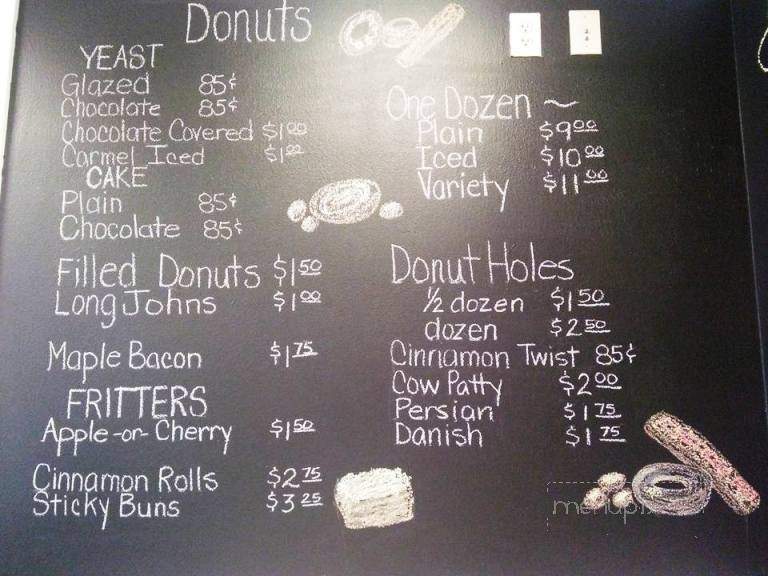 Donuts
YEAST
Glazed 85¢
Chocolate 85¢
Chocolate Covered $1.00
Carmel Iced $1.00
CAKE
Plain 85¢
Chocolate 85¢
Filled Donuts $1.50
Long Johns $1.00
Maple Bacon $1.75
FRITTERS
Apple-or-Cherry $1.50
Cinnamon Rolls $2.75
Sticky Buns $3.25
One Dozen ~
Plain $9.00
Iced $10.00
Variety $11.00
Donut Holes
½ dozen $1.50
dozen $2.50
Cinnamon Twist 85¢
Cow Patty $2.00
Persian $1.75
Danish $1.75